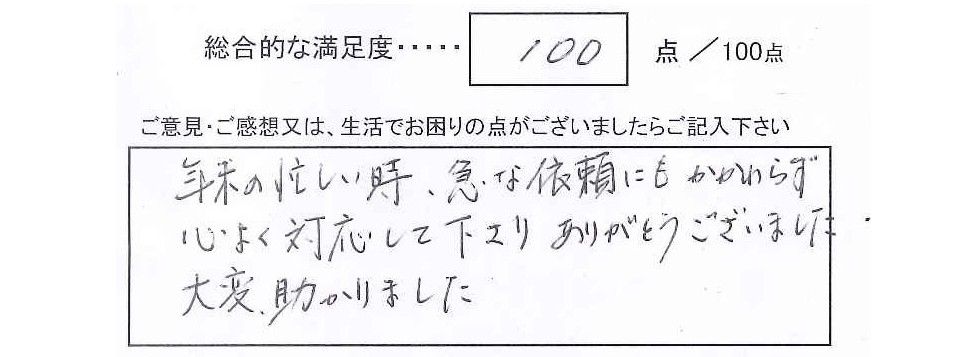 総合的な満足度‥‥‥ 100 点 ／100点
ご意見・ご感想又は、生活でお困りの点がございましたらご記入下さい
年末の忙しい時、急な依頼にもかかわらず
心よく対応して下さり ありがとうございました.
大変、助かりました